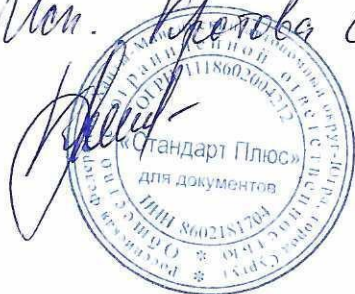 Исп.
Российская
автономный округ-Югра город Сургут
Общество
ограниченной ответственностью
ОГРН 1118602004212
«Стандарт Плюс»
для документов
ИНН 8602181704